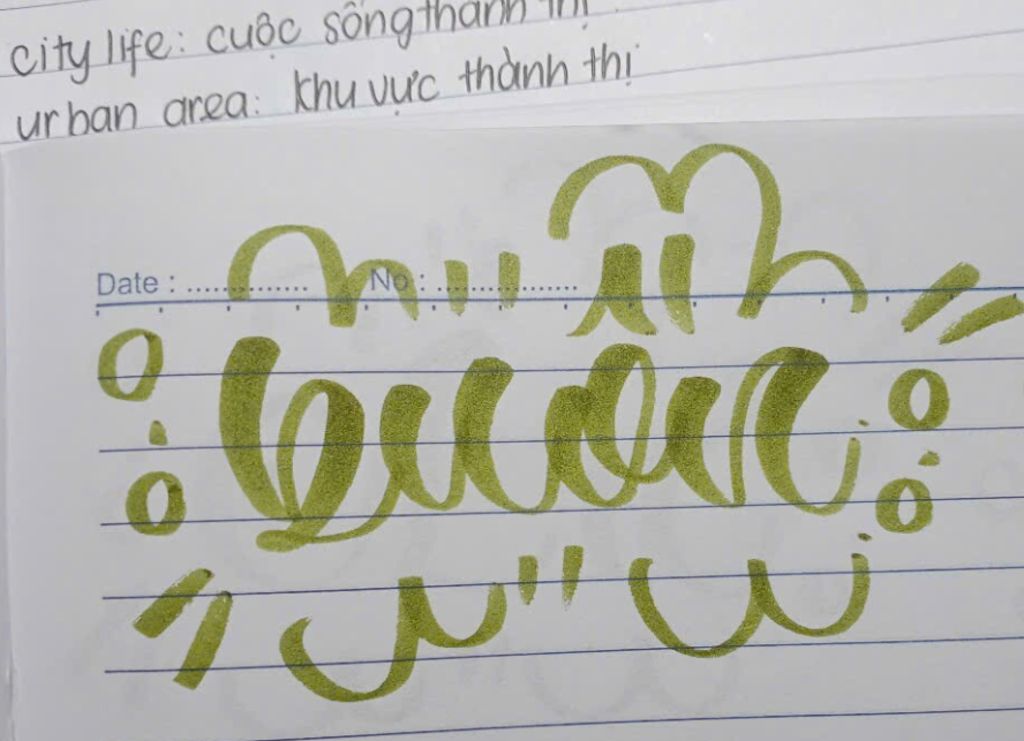 city life: cuộc sống thành thị
urban area: khu vực thành thị
Date : .............. No : ................
buồn